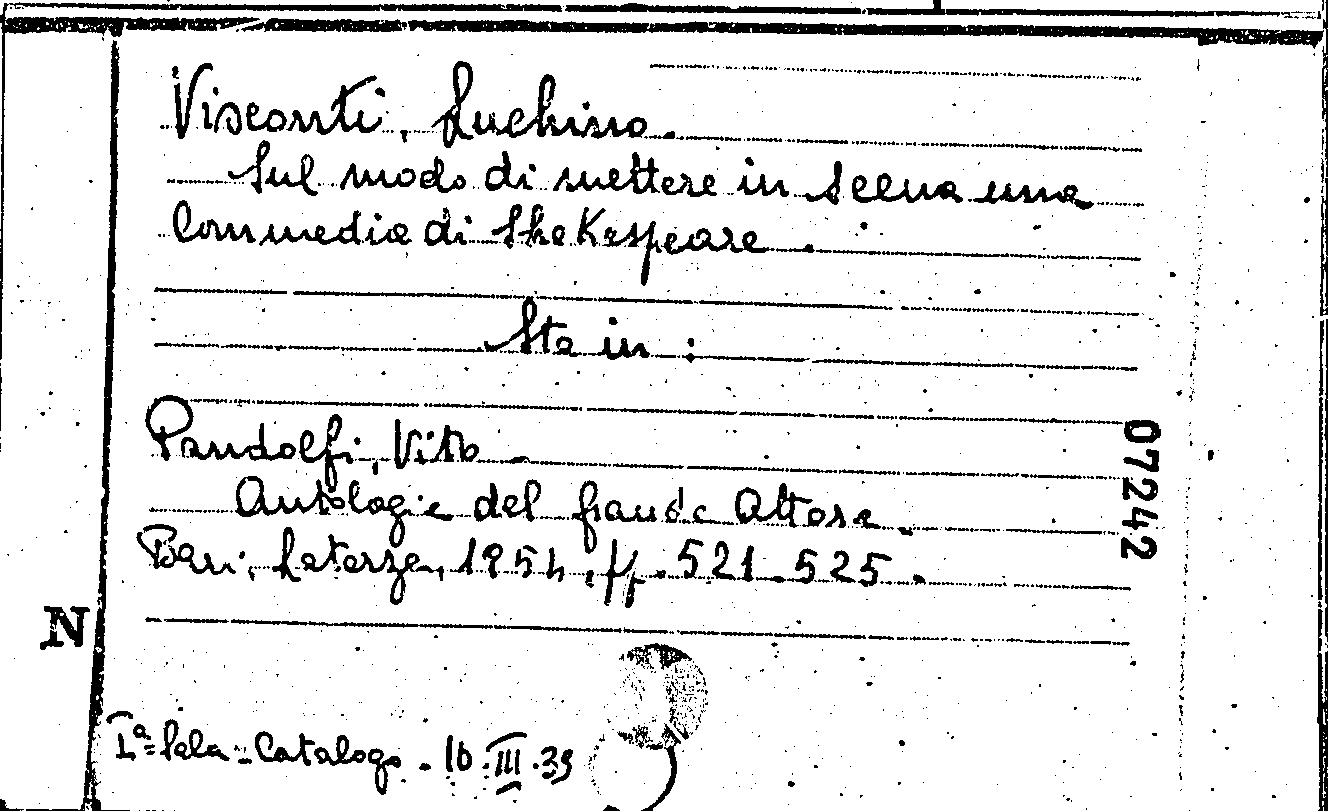 Visconti, Luchino.
Sul modo di mettere in scena una
Commedia di Shakespeare.
Sta in:
Pandolfi, Vito -
Antologia del grande Attore.
Bari, Laterza, 1954, pp. 521-525.
07242
N
Iª Sala - Catalogo - 16.III.39